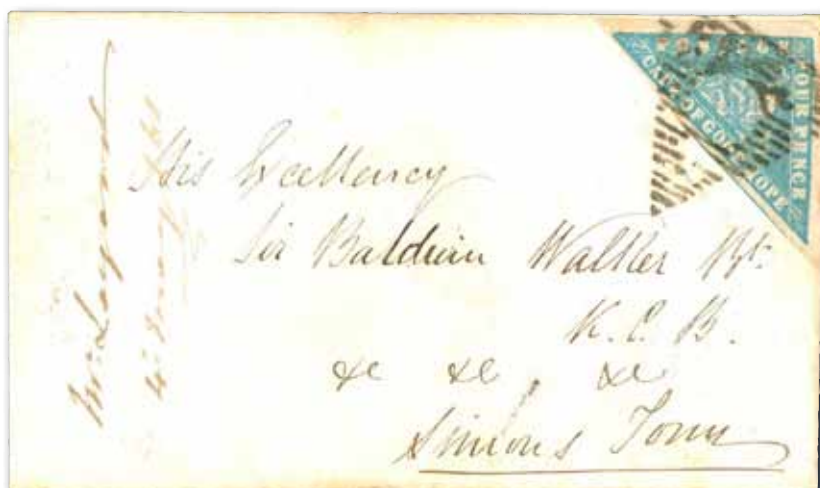 POSTAGE
CAPE OF GOOD HOPE
FOUR PENCE
His Excellency
Sir Baldwin Walker Bt.
K.C.B.
&c &c &c
Simons Town